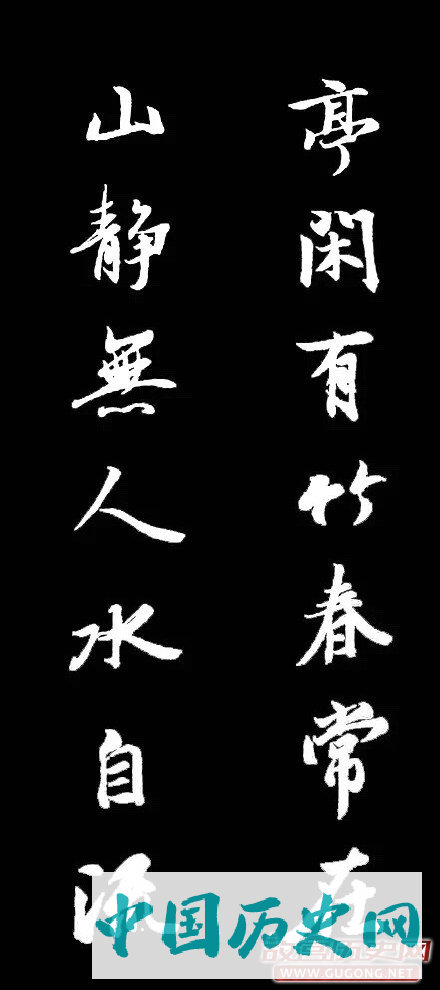 亭閑有竹春常在
山静無人水自流
中国历史网
WWW.GUGONG.NET